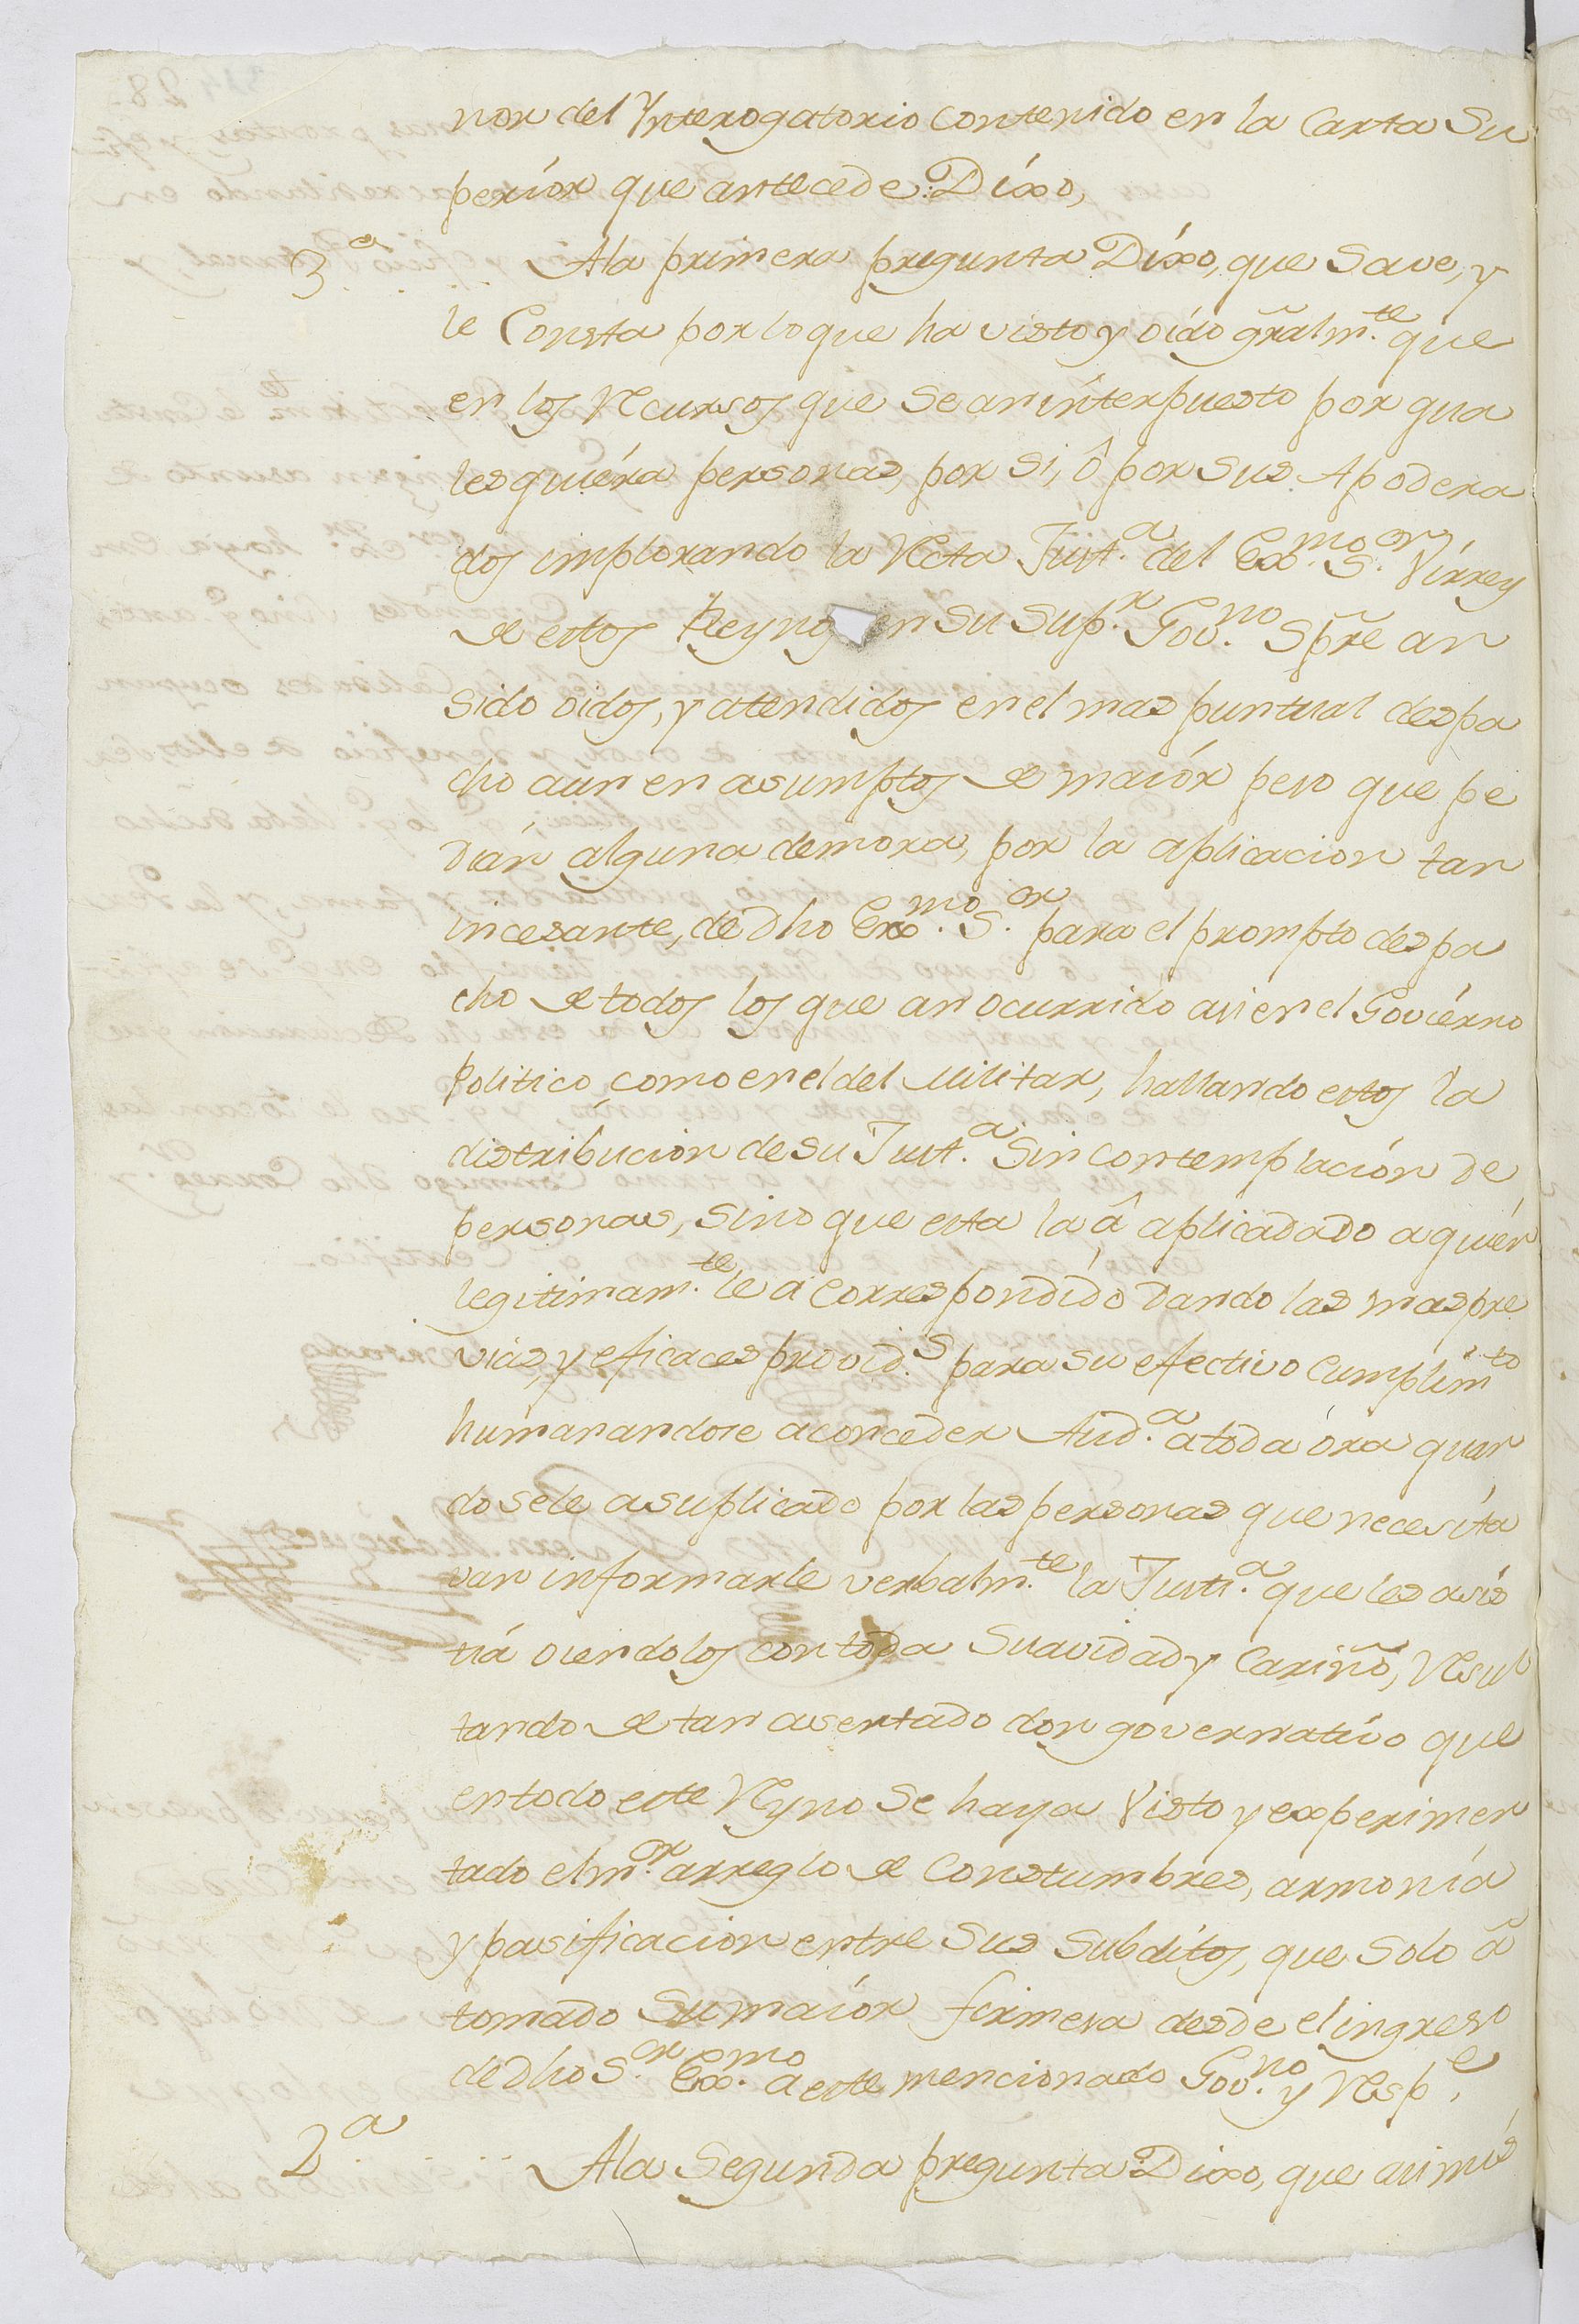 nor del Ynterogatorio contenido en la Carta Su
períor que antecede: Díxo,
3.ª Ala primera pregunta Díxo, que save, y
le Consta por lo que ha visto y oído gralm.te que
en los Recursos que se an ínterpuesto por qua
lesquiéra personas, por si, ô por sus Apodera
dos implorando la Recta Just.a del Exmo. S.or Vírrey
de estos Reynos en su Sup.r Gov.no Spre an
sido oidos, y atendidos en el mas puntual despa
cho aun en asumptos de maíór peso que pe
dían alguna demora, por la aplicacion tan
incesante, de dho Exmo. S.or para el prompto despa
cho de todos los que an ocurrido asi en el Goviérno
Politico, como en el del Militar, hallando estos la
distribución de su Just.a sin contemplación de
personas, sino que esta la â aplicadado a quién
legitimam.te le a correspondído dando las mas pre
vias, y eficaces provid.s para su efectivo cumplimto
humanandose a conceder Aud.a a toda óra quan
do se le a suplicado por las personas que necesíta
van informarle verbalm.te la Justi.a que les asis
tiá oiendolos con toda Suavidad y Cariño, Resul
tando de tan asertado don governatívo que
en todo este Reyno se haya Visto y experimen
tado el m.or arreglo de Constumbres, armonía
y pasificacion entre sus subdítos, que solo â
tomado su maíór firmesa desde el ingreso
de dho S.or Exmo. a este mencionado Gov.no y Resp.e
2.ª Ala Segunda pregunta: Dixo, que asimis